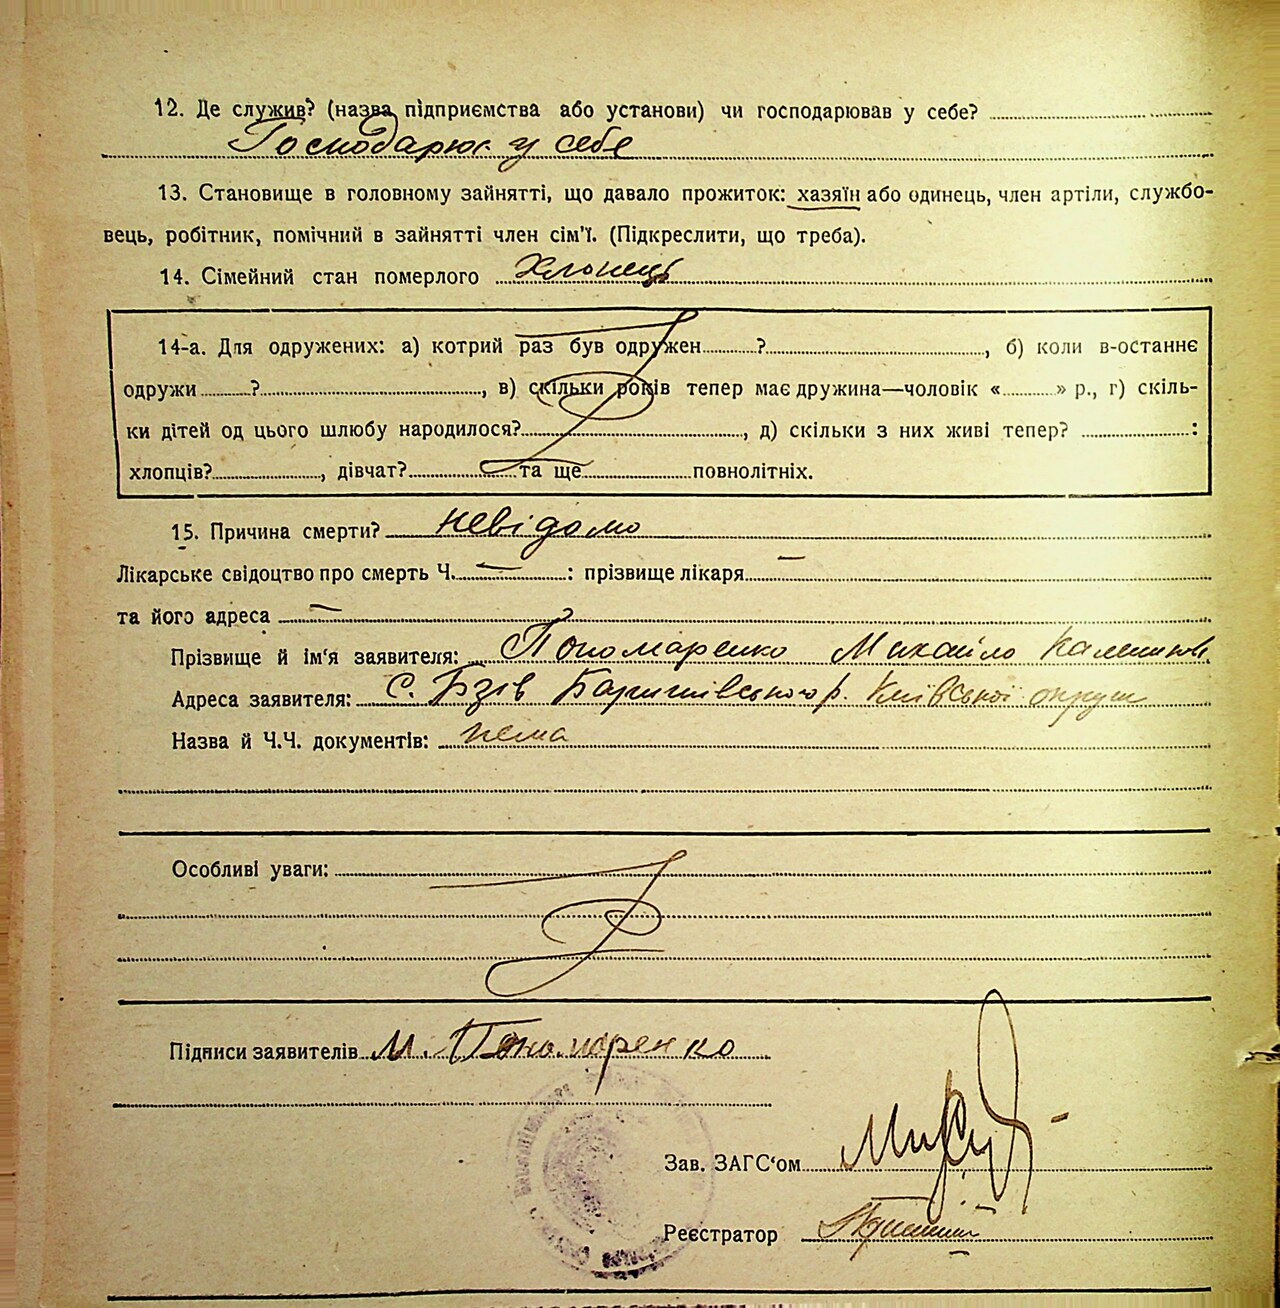 12. Де служив? (назва підприємства або установи) чи господарював у себе?
Господарює у себе
13. Становище в головному зайнятті, що давало прожиток: хазяїн або одинець, член артіли, службо-
вець, робітник, помічний в зайнятті член сім'ї. (Підкреслити, що треба).
14. Сімейний стан померлого Хлопець
14-а. Для одружених: а) котрий раз був одружен ? , б) коли в-останнє
одружи ? , в) скільки років тепер має дружина—чоловік « » р., г) скіль-
ки дітей од цього шлюбу народилося? , д) скільки з них живі тепер? :
хлопців? , дівчат? та ще повнолітніх.
15. Причина смерти? невідомо
Лікарське свідоцтво про смерть Ч. — : прізвище лікаря —
та його адреса —
Прізвище й ім'я заявителя: Пономаренко Михайло
Адреса заявителя: с. Бзів Баришівського р. Київської округи
Назва й Ч.Ч. документів: нема
Особливі уваги:
Підписи заявителів М. Пономаренко
Зав. ЗАГС'ом
Реєстратор